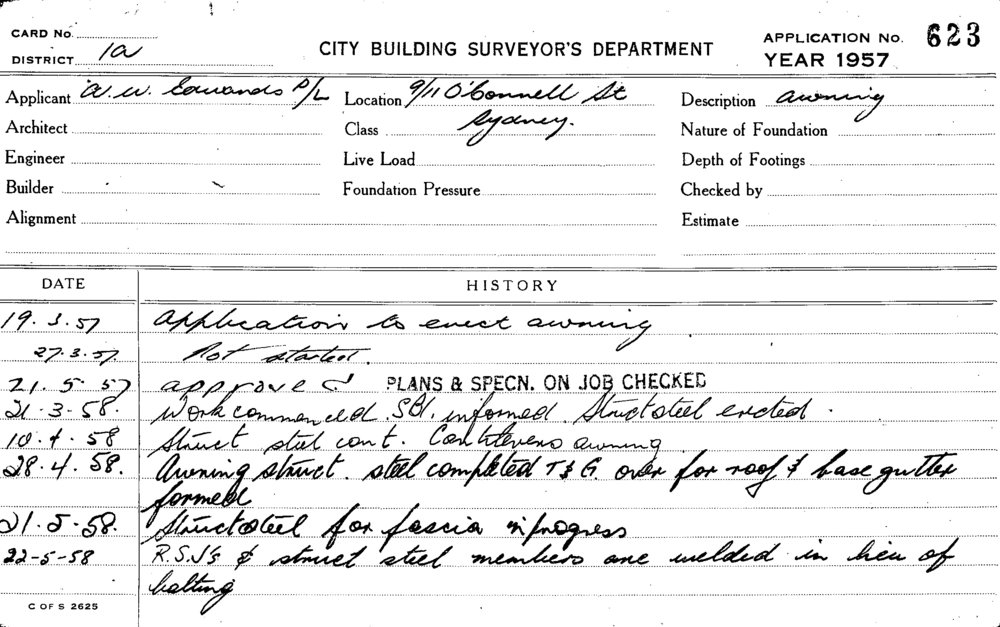 CARD No.
DISTRICT 1a
CITY BUILDING SURVEYOR'S DEPARTMENT
APPLICATION No. 623
YEAR 1957
Applicant A. W. Edwards P/L
Location 9/11 O'Connell St
Sydney.
Description awning
Architect
Class
Nature of Foundation
Engineer
Live Load
Depth of Footings
Builder
Foundation Pressure
Checked by
Alignment
Estimate
DATE HISTORY
19.3.57 Application to erect awning
27.3.57. Not started.
21.5.57 approved PLANS & SPECN. ON JOB CHECKED
21.3.58. Work commenced. informed. Struct steel erected.
10.4.58 Struct steel cont. Cantilevers awning
28.4.58. Awning struct. steel completed T & G. over for roof & base gutter
formed
21.5.58. Struct steel for fascia in progress
22-5-58 R.S.J's & struct steel members are welded in lieu of
bolting
C OF S 2625